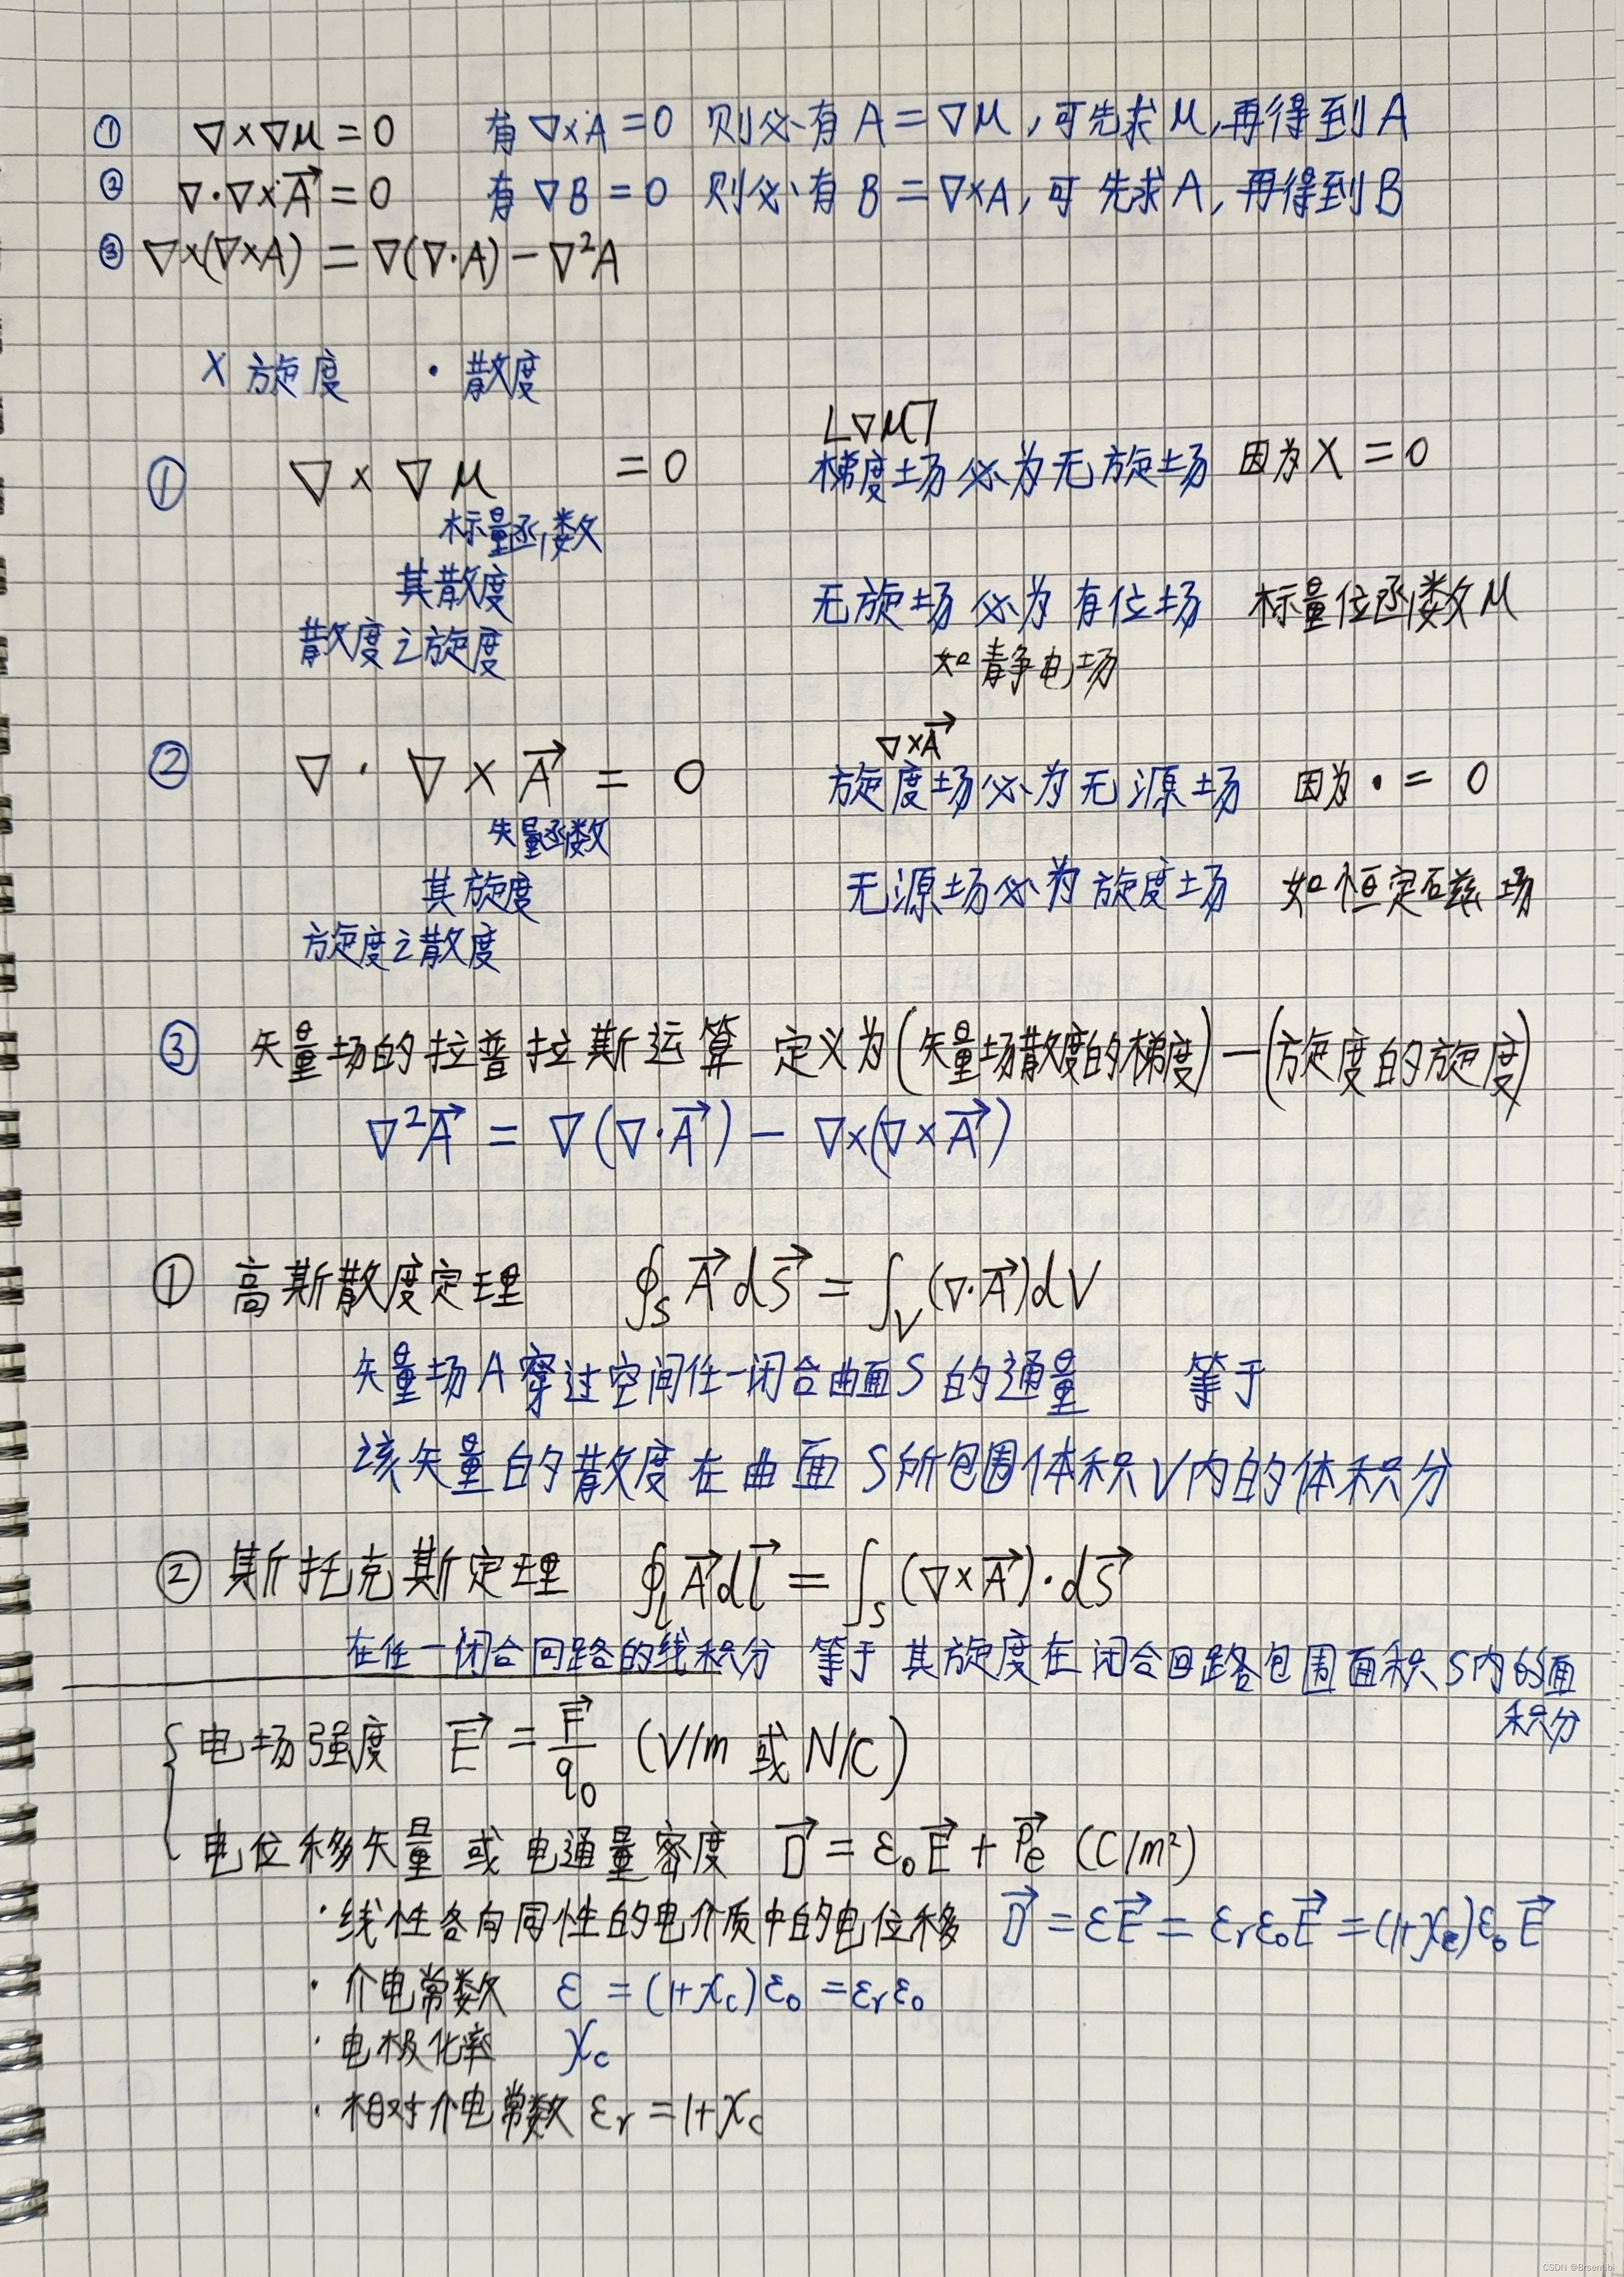 ① ∇×∇μ=0 有∇×A=0 则必有A=∇μ,可先求μ,再得到A
② ∇·∇×A⃗=0 有∇B=0 则必有B=∇×A,可先求A,再得到B
③ ∇×(∇×A)=∇(∇·A)-∇²A
× 旋度 · 散度
∇μ
① ∇×∇μ =0 梯度场必为无旋场 因为×=0
标量函数
其散度
无旋场必为有位场 标量位函数μ
散度之旋度
如静电场
∇×A⃗
② ∇·∇×A⃗=0 旋度场必为无源场 因为·=0
矢量函数
其旋度
无源场必为旋度场 如恒定磁场
旋度之散度
③ 矢量场的拉普拉斯运算 定义为(矢量场散度的梯度)-(旋度的旋度)
∇²A⃗=∇(∇·A⃗)-∇×(∇×A⃗)
① 高斯散度定理 ∮ₛA⃗dS⃗=∫ᵥ(∇·A⃗)dV
矢量场A穿过空间任一闭合曲面S的通量 等于
该矢量的散度在曲面S所包围体积V内的体积分
② 斯托克斯定理 ∮ₗA⃗dl⃗=∫ₛ(∇×A⃗)·dS⃗
在任一闭合回路的线积分 等于 其旋度在闭合回路包围面积S内的面
积分
电场强度 E⃗=F⃗/q₀ (V/m 或 N/C)
电位移矢量 或 电通量密度 D⃗=ε₀E⃗+P⃗e (C/m²)
·线性各向同性的电介质中的电位移 D⃗=εE⃗=εrε₀E⃗=(1+χe)ε₀E⃗
·介电常数 ε=(1+χc)ε₀=εrε₀
·电极化率 χc
·相对介电常数 εr=1+χc
CSDN @Brsentibi